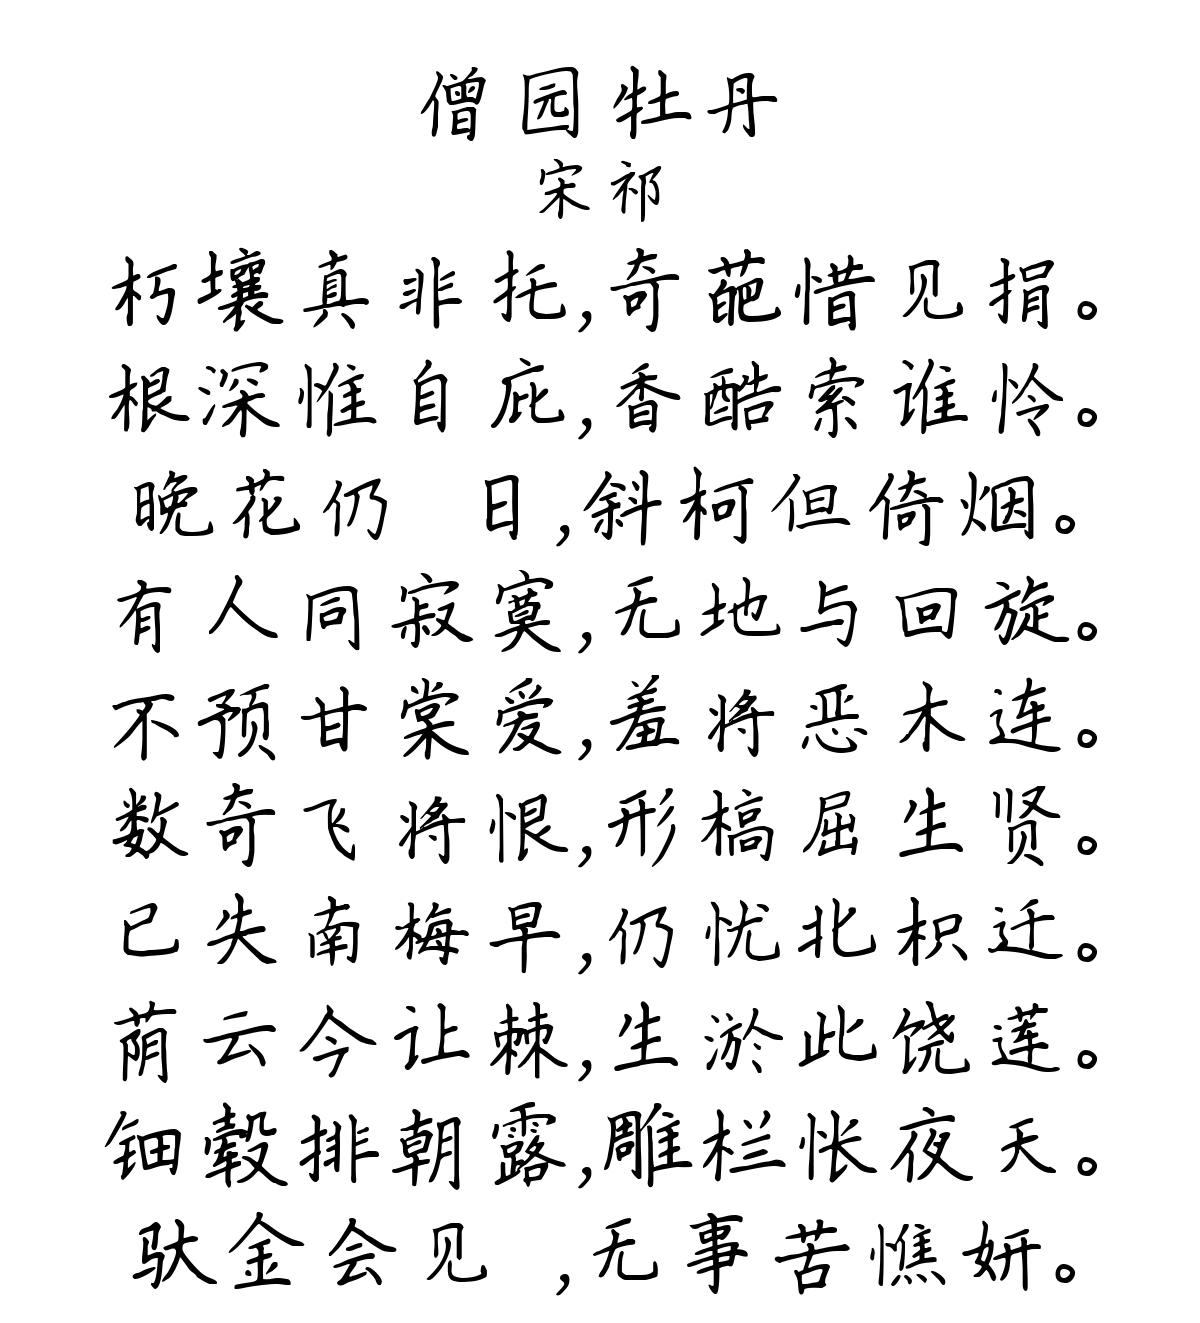 僧园牡丹
宋祁
朽壤真非托,奇葩惜见捐。
根深惟自庇,香酷索谁怜。
晚花仍 日,斜柯但倚烟。
有人同寂寞,无地与回旋。
不预甘棠爱,羞将恶木连。
数奇飞将恨,形槁屈生贤。
已失南梅早,仍忧北枳迁。
荫云今让棘,生淤此饶莲。
钿毂排朝露,雕栏怅夜天。
驮金会见 ,无事苦憔妍。